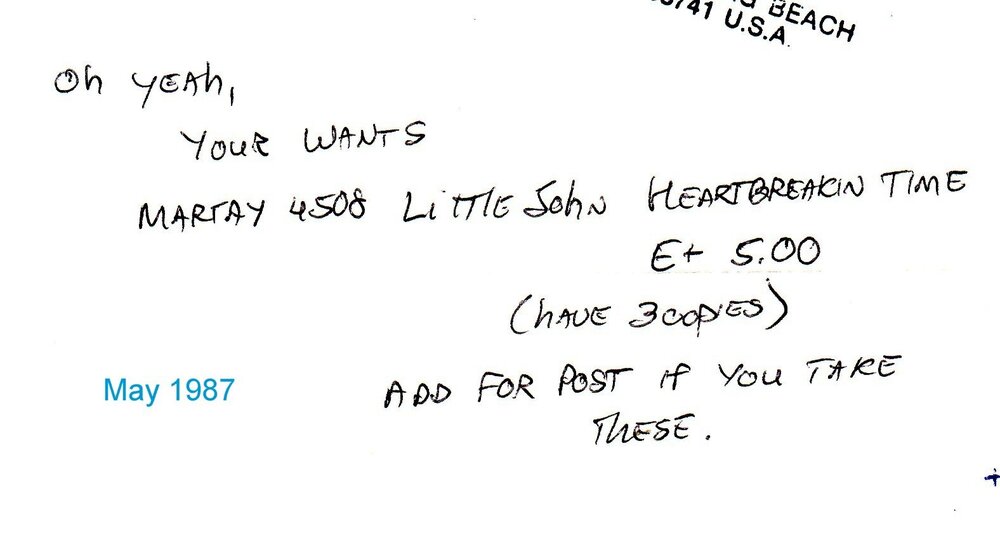 BEACH
741 U.S.A.
Oh YEAh,
YOUR WANTS
MARTAY 4508 LiTTLE JohN HEARTBREAKIN TIME
E+ 5.00
(hAVE 3 COPIES)
May 1987
ADD FOR POST if YOU TAKE
THESE.